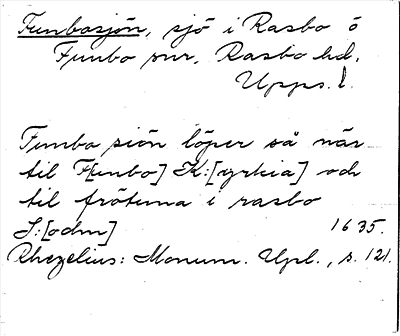 Funbosjön, sjö i Rasbo o
Funbo snr, Rasbo hd,
Upps. l.
Funba siön löper så när
til F[unbo] K:[yrkia] och
til frötuna i rasbo
S:[odm] 1635.
Rhezelius: Monum. Upl., s. 121.